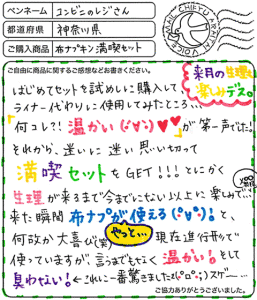 ペンネーム コンビニのレジさん
都道府県 神奈川県
ご購入商品 布ナプキン満喫セット
MAIL CHIEFU ARATAN VOICE
ご自由に商品に関するご感想などお書きください。
来月の生理も楽しみデス。
はじめてセットを試しに購入して
ライナー代わりに使用してみたところ...
「何コレ?! 温かい(:'∀')♥♥」が第一声でした!
それから、迷いに迷い思い切って
満喫セットをGET!!!とにかく
生理が来るまで今までにない以上に楽しみで...
来た瞬間 布ナプが使える(:°∀°)!と、
何故か大喜び(笑) やっと...
現在進行形で
使っていますが、言うまでもなく温かい!そして
臭わない!←これに一番驚きました(°ロ°;)スゲー...
ご協力ありがとうございました。